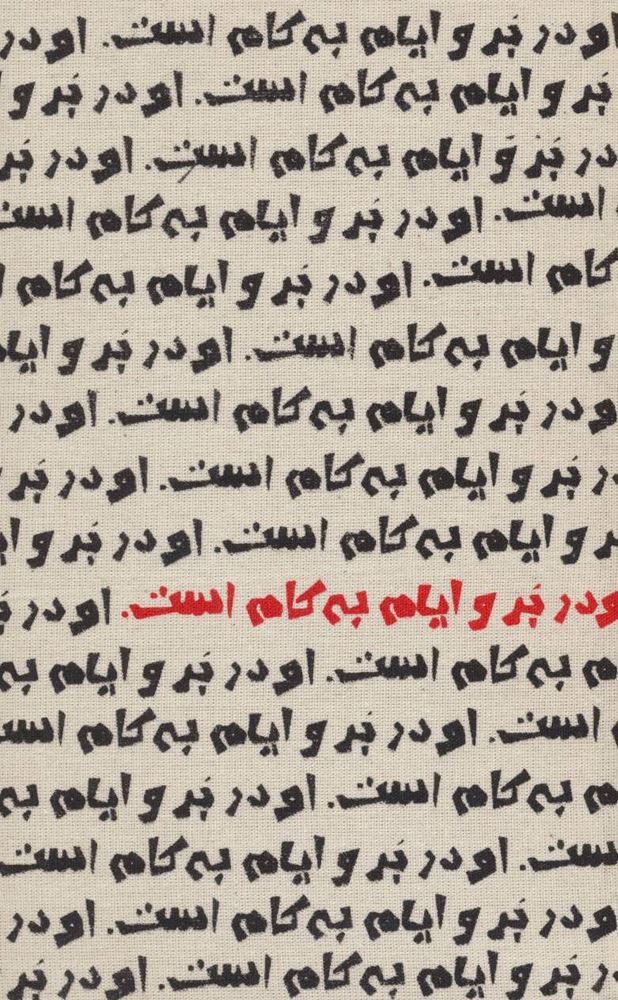 او در بَر و ایام به کام است. او در
بَر و ایام به کام است. او در بَر و
در بَر و ایام به کام است. او در بَر
است. او در بَر و ایام به کام است
کام است. او در بَر و ایام به کام
و ایام به کام است. او در بَر و ایا
و در بَر و ایام به کام است. او در
ر بَر و ایام به کام است. او در بَر
ر و ایام به کام است. او در بَر و ا
ودر بَر و ایام به کام است. او در بَ
م به کام است. او در بَر و ایام به
است. او در بَر و ایام به کام اس
م به کام است. او در بَر و ایام به
ست. او در بَر و ایام به کام است
و در بَر و ایام به کام است. او در
ر بَر و ایام به کام است. او در بَر